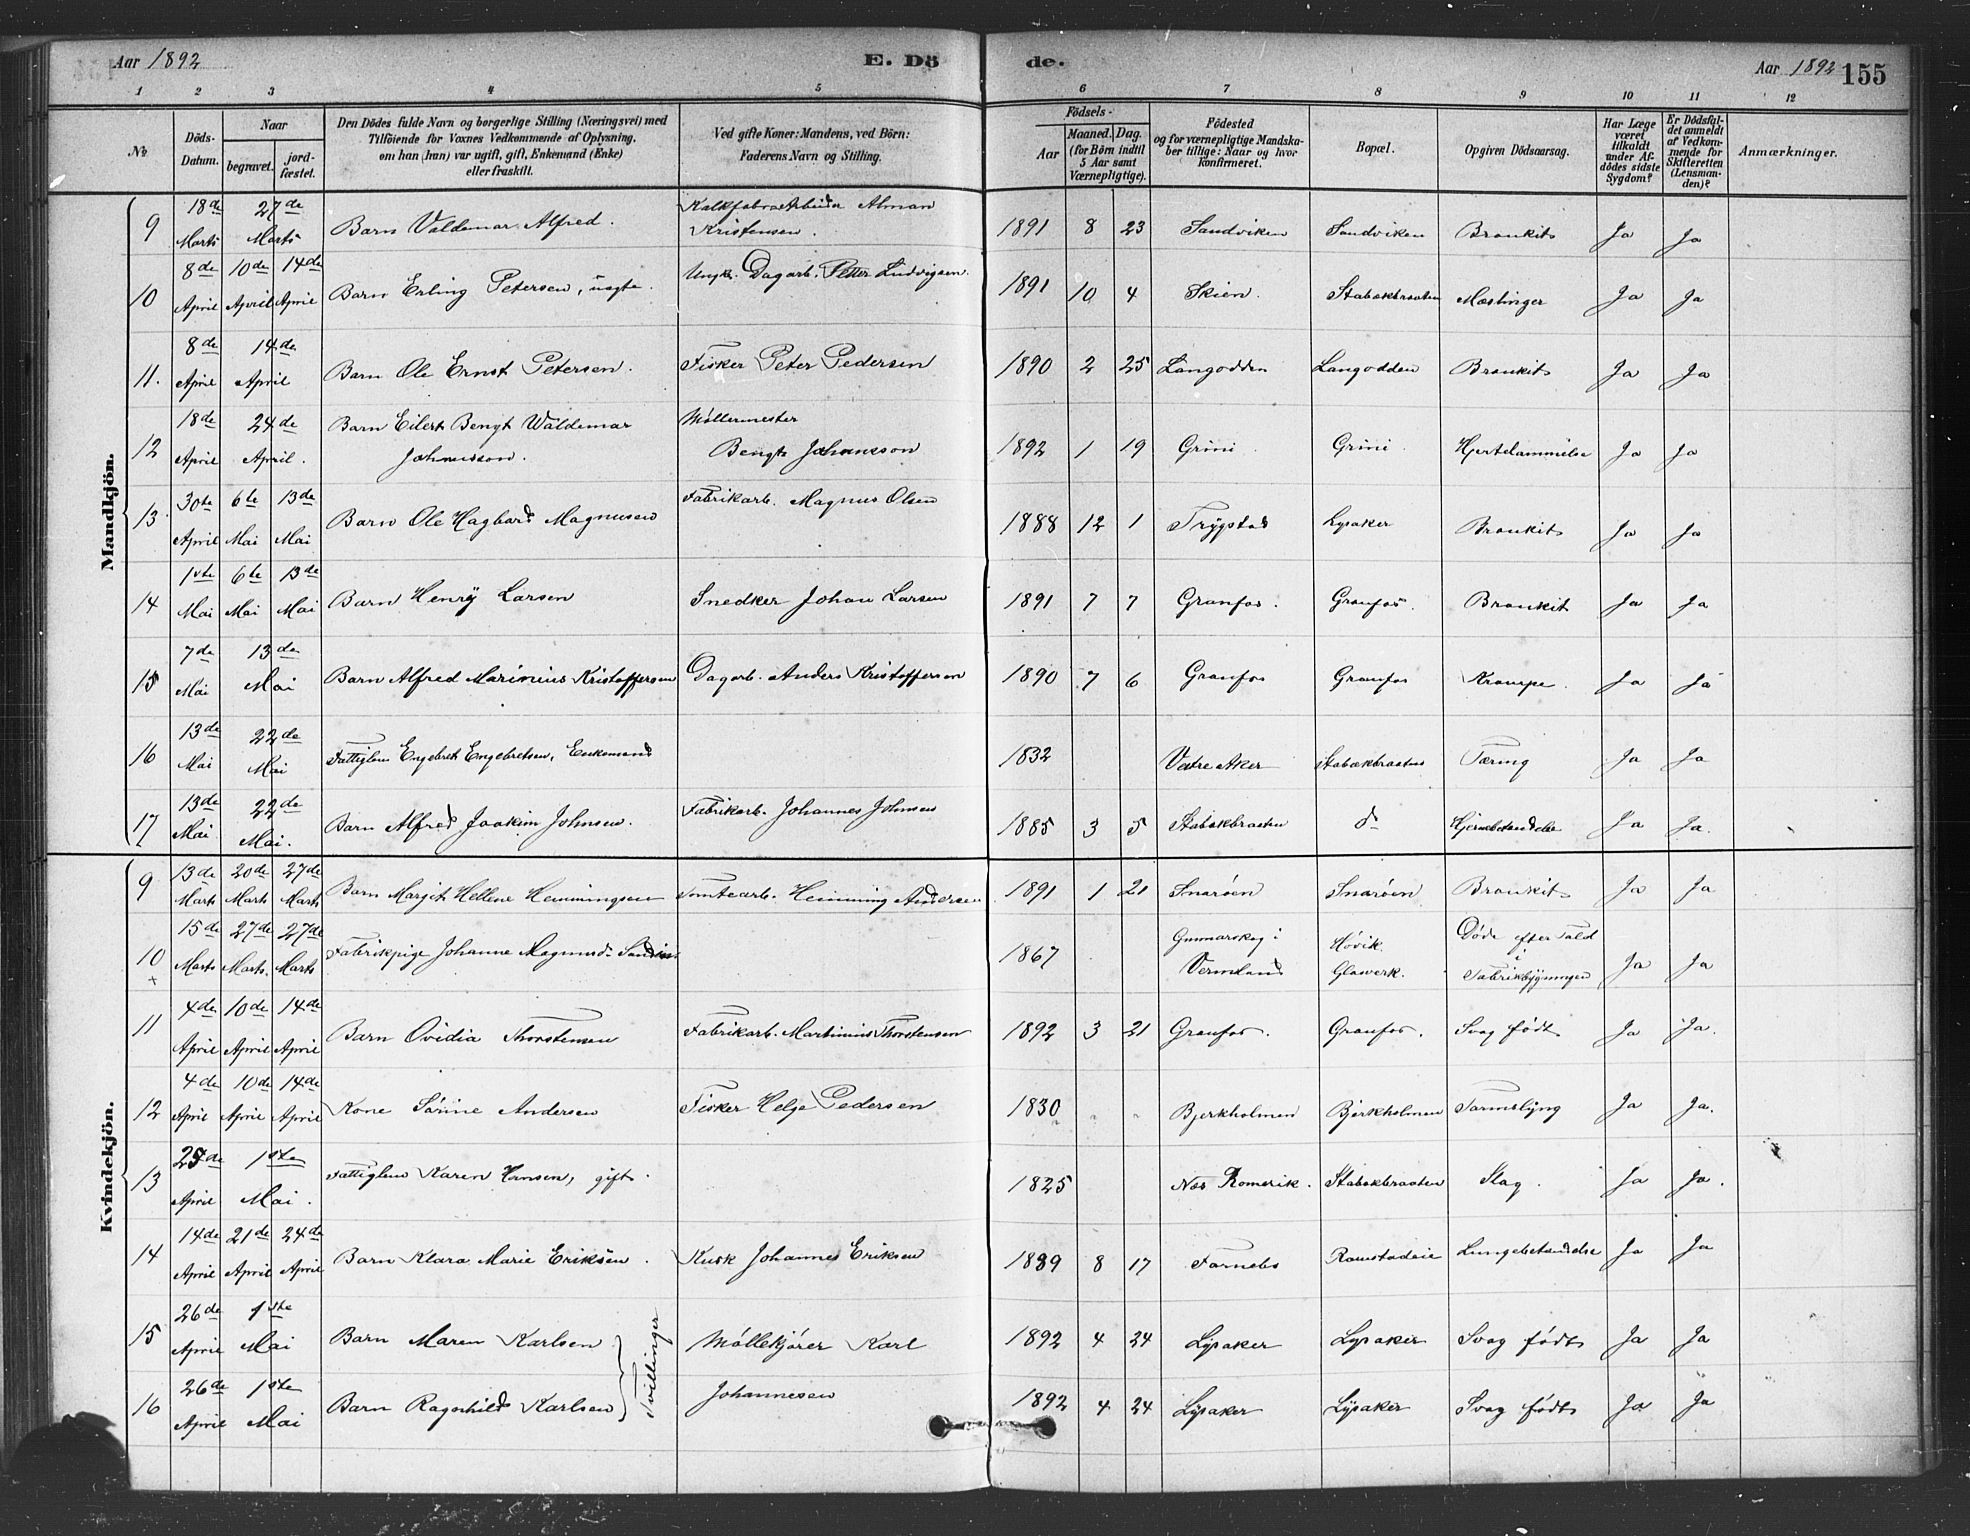 Aar 1892 E. Dö de. Aar 1892 155
1 2 3 4 5 6 7 8 9 10 11 12
№ Döds-Datum. Naar begravet. jord-fæstet. Den Dödes fulde Navn og borgerlige Stilling (Næringsvei) med Tilföiende for Voxnes Vedkommende af Oplysning, om han (hun) var ugift, gift, Enkemand (Enke) eller fraskilt. Ved gifte Koner: Mandens, ved Börn: Faderens Navn og Stilling. Födsels- Aar Maaned. Dag. (for Börn indtil 5 Aar samt Værnepligtige). Födested og for værnepligtige Mandska-ber tillige: Naar og hvor konfirmeret. Bopæl. Opgiven Dödsaarsag. Har Læge været tilkaldt under Af-dödes sidste Sygdom? Er Dödsfal-det anmeldt af Vedkom-mende for Skifteretten (Lensman-den)? Anmærkninger.
Mandkjön.
9 18de Marts 27de Marts Barn Valdemar Alfred. Kristensen. 1891 8 23 Sandviken Sandviken Bronkit Ja Ja
10 8de April 10de April 14de April Barn Erling Petersen, uægte. Ungk. Dagarb. Petter Ludvigsen. 1891 10 4 Skien. Stabækbraaten Mæslinger Ja Ja
11. 8de April 14de April Barn Ole Ernst Petersen. Fisker Peter Pedersen 1890 2 25 Langodden Langodden Bronkit Ja Ja
12 18de April 24de April. Barn Eilert Bengt Waldemar Johannsson. Møllermester Bengt Johansson 1892 1 19 Grini. Grini. Hjertelammelse Ja Ja
13. 30te April 6te Mai 13de Mai Barn Ole Hagbard Magnusen Fabrikarb. Magnus Olsen 1888 12 1 Trygstad Lysaker Bronkit Ja Ja
14 1ste Mai 6te Mai 13de Mai Barn Henry Larsen Snedker Johan Larsen 1891 7 7 Granfos. Granfos. Bronkit Ja Ja
15 7de Mai 13de Mai Barn Alfred Marinius Kristoffersen Dagarb. Anders Kristoffersen 1890 7 6 Granfos Granfos Krampe. Ja Ja
16 13de Mai 22de Mai Fattiglem Engebret Engebretsen, Enkemand 1832 Vestre Aker Stabækbraaten Tæring Ja Ja
17 13de Mai 22de Mai. Barn Alfred Joakim Johnsen. Fabrikarb. Johannes Johnsen 1885 3 5 Stabækbraaten do Hjernebetændelse Ja Ja.
Kvindekjön.
9 13de Marts 20de Marts 27de Marts Barn Margit Hellene Hemmingsen Tomtearb. Hemming Andersen 1891 1 21 Snarøen Snarøen Bronkit Ja Ja
10 + 15de Marts 27de Marts. 27de Marts Fabrikpige Johanne Magnusd. 1867 Gunnarskog i Vermland Høvik Glasverk. Døde efter Fald i Fabrikbygningen Ja Ja
11 4de April 10de April 14de April Barn Ovidia Thorstensen Fabrikarb. Martinius Thorstensen 1892 3 21 Granfos. Granfos. Svag født Ja Ja.
12 4de April 10de April 14de April Kone Sørine Andersen Fisker Helge Pedersen 1830 " " Bjerkholmen Bjerkholmen Tarmslyng Ja Ja.
13 25de April 1ste Mai. Fattiglem Karen Hansen, gift. 1825 Næs Romerik. Stabækbraaten Slag. Ja Ja.
14 14de April 21de April 24de April Barn Klara Marie Eriksen. Kusk Johannes Eriksen 1889 8 17 Farnebo Ramstadeie Lungebetændelse Ja Ja
15 26de April 1ste Mai Barn Maren Karlsen Tvillinger Møllekjører Karl 1892 4 24 Lysaker Lysaker Svag født Ja Ja
16 26de April 1ste Mai Barn Ragnhild Karlsen Johannesen 1892 4 24 Lysaker Lysaker Svag født Ja Ja